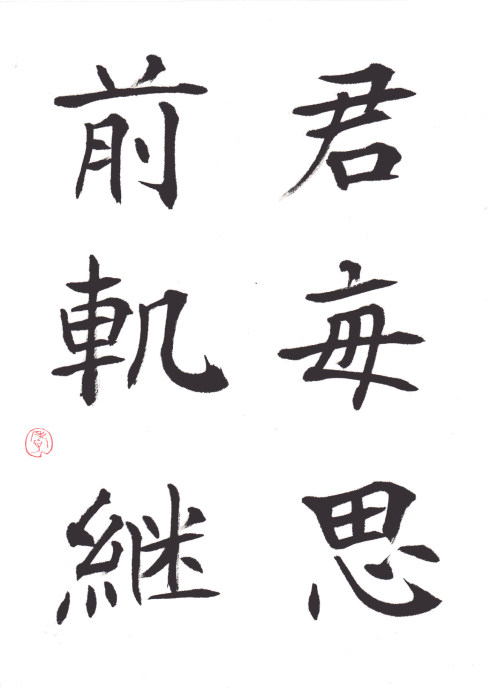 君毎思
前軌継